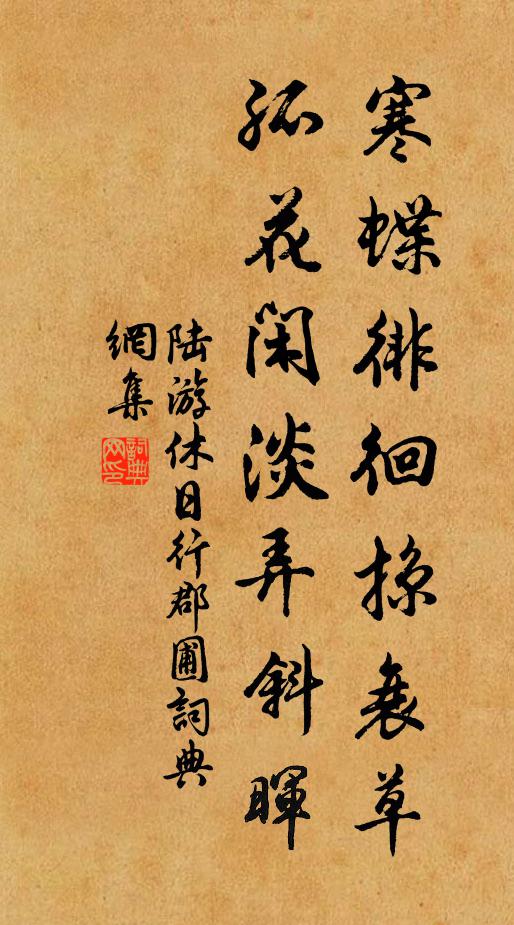 寒蝶徘徊掠衰草
孤花閑淡弄斜暉
陸游休日行郡圃詞典
網集
詞典
网印